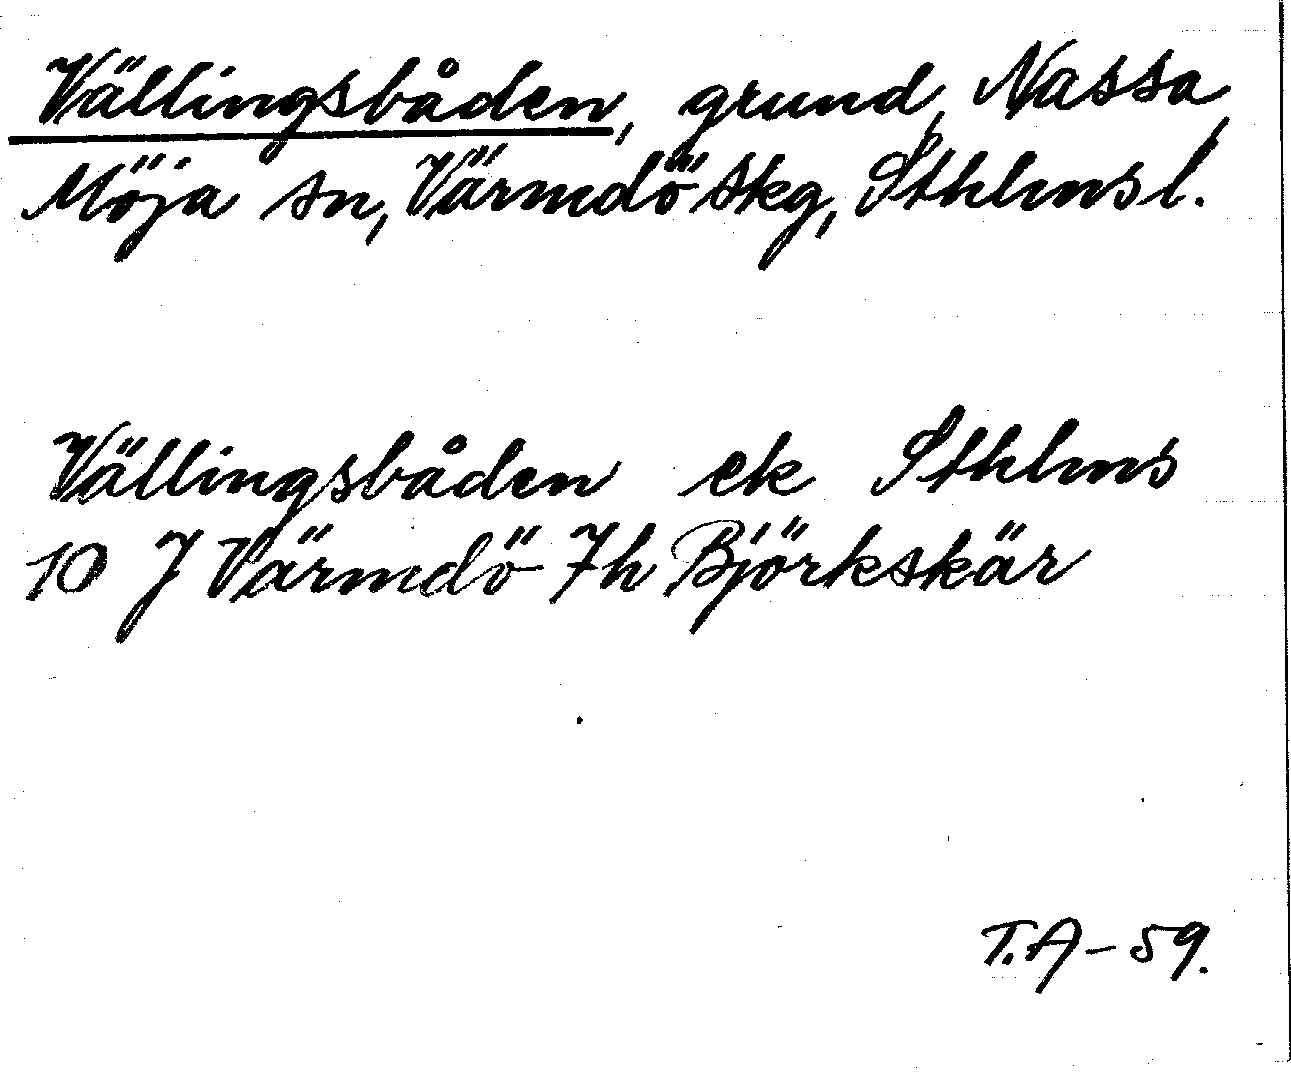 Vällingsbåden, grund, Nassa
Möja sn, Värmdö skg, Sthlms l.
Vällingsbåden ek Sthlms
10 J Värmdö 7h Björkskär
T.A-59.